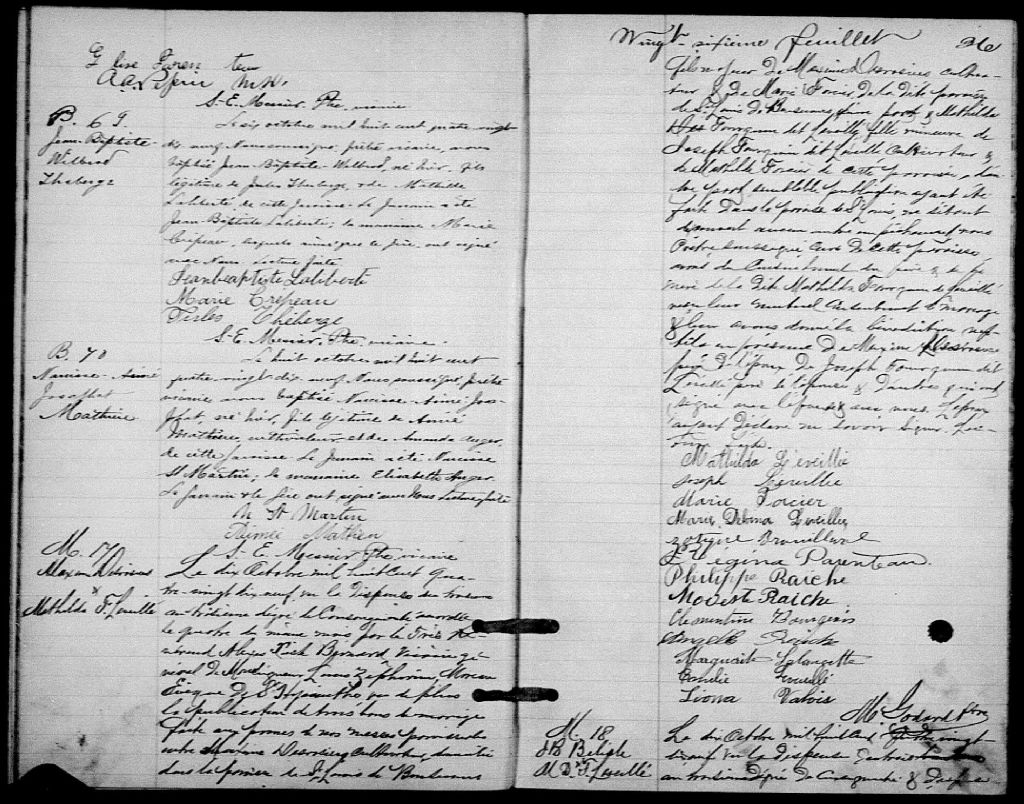 A.A. Pepin
S-E. Messier. Ptre, vicaire
B. 69.
Jean-Baptiste-
Wilbrod
Theberge
Le six octobre mil huit cent quatre-vingt
dix neuf, Nous soussigné, prêtre vicaire, avons
baptisé Jean-Baptiste-Wilbrod, né hier, fils
légitime de Jules Theberge, & de Mathilde
Laliberté de cette paroisse. Le parrain a été
Jean-Baptiste Laliberté; la marraine Marie
Crépeau, lesquels ainsi que le père, ont signé
avec Nous. Lecture faite
Jeanbeaptiste Laliberte
Marie Crepeau
Théberge
S-E. Messier. Ptre. vicaire.
B. 70
Narcisse-Aimé
Josaphat
Mathieu
Le huit octobre mil huit cent
quatre-vingt dix-neuf, Nous soussigné, prêtre
vicaire avons baptisé Narcisse-Aimé-Josa-
phat, né hier, fils légitime de Aimé
Mathieu, cultivateur, et de Amanda Auger,
de cette paroisse. Le parrain a été Narcisse
St Martin; la marraine Elizabeth Auger.
Le parrain & le père ont signé avec Nous. Lecture faite
N St Martin
Aimée Mathieu
S-E. Messier Ptre vicaire
M. 17
Mathilda F. Léveillé
Le dix Octobre mil huit cent qua-
tre-vingt dix neuf vu la dispense du troisieme
au troisième degré de Consanguinité accordée
le quatre du même mois par le Très Ré-
vérend Bernard, Vicaire gé-
néral de Monseigneur Louis Zéphirin, Moreau
Evêque de St Hyacinthe vu de plus
la publication de trois bans de mariage
faite aux prônes de nos messes paroissiales
entre Maxime Desrosiers Cultivateur, domicilié
dans la paroisse de St Louis de Bonsecours
Vingt-sixième feuillet 26
fils majeur de Maxime Desrosiers cultiva-
teur & de Marie Forcier de la dite paroisse
de St Louis de Bonsecours d'une part, & Mathilda
Fourquin dit Leveillé fille mineure de
Joseph Fourquin dit Leveillé Cultivateur &
de Mathilde Forcier de cette paroisse, d'au-
tre part semblable publication ayant été
faite dans la paroisse St Louis, ne s'étant
découvert aucun autre empêchement nous
Prêtre soussigné, curé de cette paroisse,
avons du Consentement du père & de la
mère de la dite Mathilda Fourquin dit Leveillé
reçu leur mutuel consentement de mariage
& leur avons donné la bénédiction nup-
tiale en présence de Maxime Desrosiers
père de l'époux de Joseph Fourquin dit
Leveillé père de l'épouse & d'autres qui ont
signé avec l'épouse avec nous. L'époux
ayant déclaré ne savoir signer. Lec-
ture faite.
Mathilda Leveillée
Joseph Leveillee
Marie Forcier
Marie Delima Leveillee
Zotique Brouillard
Régina Parenteau
Philippe Raiche
Modest Raiche
Clementine Bourgeois
Angele Raiche
Marguerite Lalancette
Emelie Leveillé
Liona Valois
M. Godard Ptre
M. 18
JB Belisle
M D. F. Leveillé
Le dix Octobre mil huit cent quatre vingt
dix neuf vu la dispense du troisieme
au troisième degré de Consanguinité &